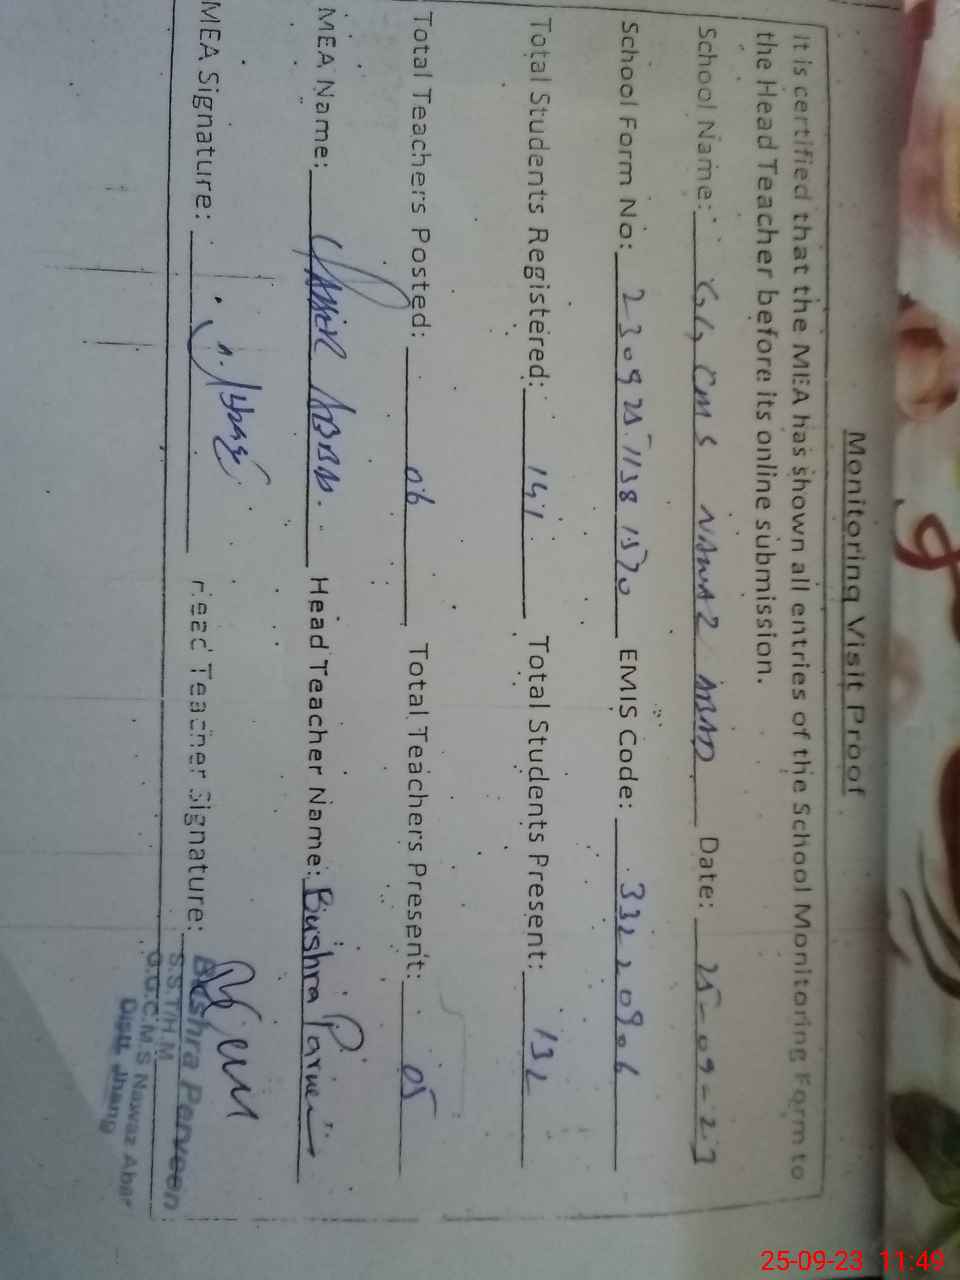 Monitoring Visit Proof
It is certified that the MEA has shown all entries of the School Monitoring Form to
the Head Teacher before its online submission.
School Name: GG CMS NAWAZ ABAD Date: 25-09-23
School Form No: EMIS Code: 33220906
Total Students Registered: 141 Total Students Present: 132
Total Teachers Posted: 06 Total Teachers Present: 05
MEA Name: YASSER ABBAS. Head Teacher Name: Bushra Parveen
MEA Signature: Head Teacher Signature:
Bushra Perveen
S.S.T/H.M
G.G.C.M.S Nawaz Abad
Distt. Jhang
25-09-23 11:49